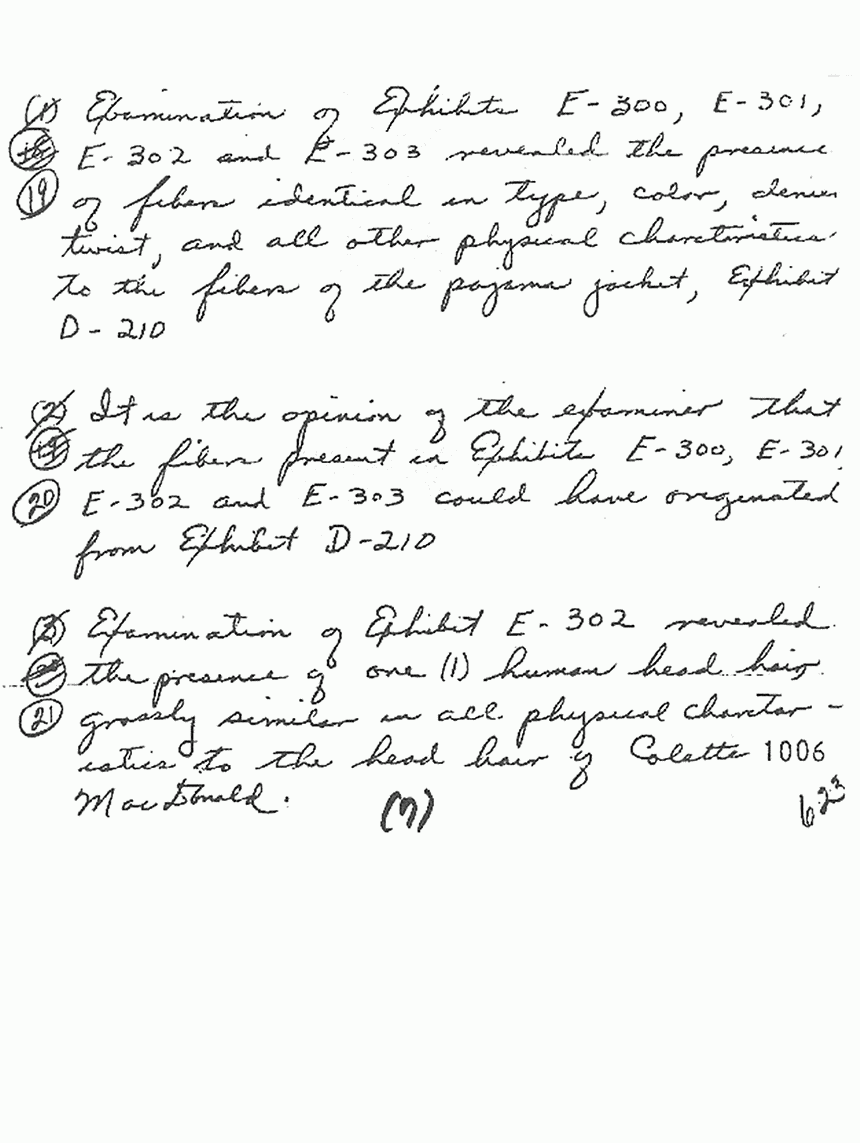 (1) Examination of Exhibits E-300, E-301,
E-302 and E-303 revealed the presence
(19) of fibers identical in type, color, denier
twist, and all other physical charctoristics
to the fibers of the pajama jacket, Exhibit
D-210
(2) It is the opinion of the examiner that
the fibers present in Exhibits E-300, E-301
(20) E-302 and E-303 could have originated
from Exhibit D-210
(3) Examination of Exhibit E-302 revealed
the presence of one (1) human head hair
(21) grossly similar in all physical charctor-
istics to the head hair of Colette 1006
MacDonald.
(7) 623